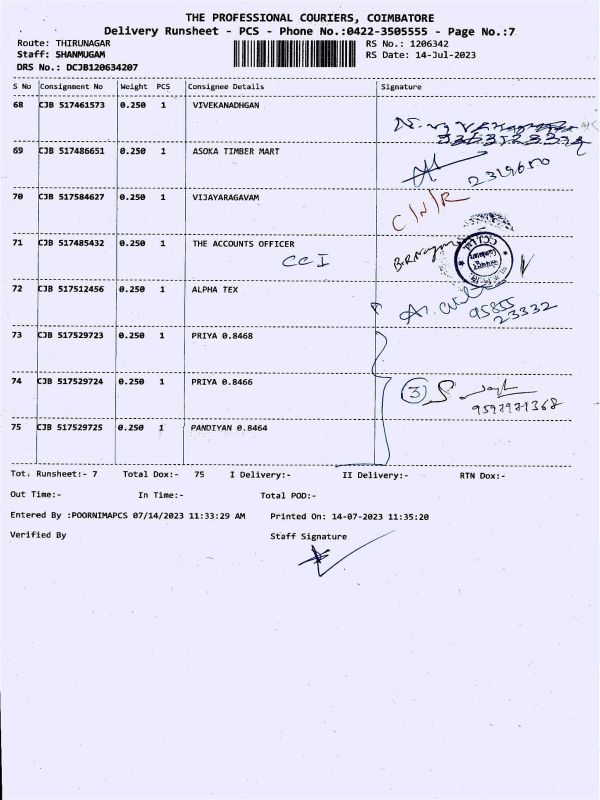 THE PROFESSIONAL COURIERS, COIMBATORE
Delivery Runsheet - PCS - Phone No.:0422-3505555 - Page No.:7
Route: THIRUNAGAR RS No.: 1206342
Staff: SHANMUGAM RS Date: 14-Jul-2023
DRS No.: DCJB120634207
S No Consignment No Weight PCS Consignee Details Signature
68 CJB 517461573 0.250 1 VIVEKANADHGAN
69 CJB 517486651 0.250 1 ASOKA TIMBER MART
2319650
70 CJB 517584627 0.250 1 VIJAYARAGAVAM
C/N/R
71 CJB 517485432 0.250 1 THE ACCOUNTS OFFICER
CCI
72 CJB 517512456 0.250 1 ALPHA TEX
95855
23332
73 CJB 517529723 0.250 1 PRIYA 0.8468
74 CJB 517529724 0.250 1 PRIYA 0.8466
3
75 CJB 517529725 0.250 1 PANDIYAN 0.8464
Tot. Runsheet:- 7 Total Dox:- 75 I Delivery:- II Delivery:- RTN Dox:-
Out Time:- In Time:- Total POD:-
Entered By :POORNIMAPCS 07/14/2023 11:33:29 AM Printed On: 14-07-2023 11:35:20
Verified By Staff Signature